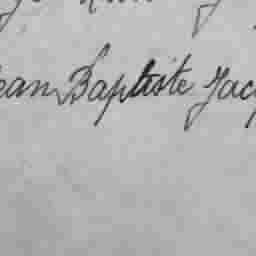 ean Baptiste Jacq